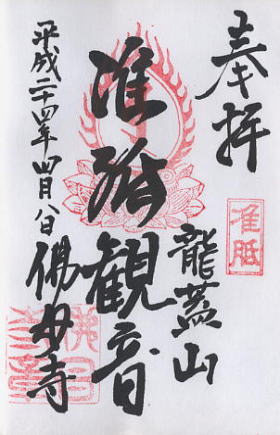 奉拝
准胝
龍蓋山
准胝觀音
佛母寺
平成二十四年四月八日